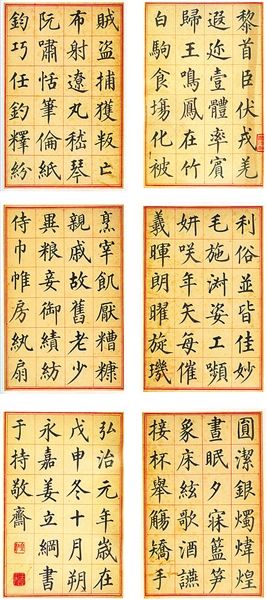 黎首臣伏戎羌
遐迩壹體率賓
歸王鳴鳳在竹
白駒食塲化被
賊盜捕獲叛亡
布射遼丸嵇琴
阮嘯恬筆倫紙
鈞巧任釣釋紛
利俗並皆佳妙
毛施淑姿工頻
妍咲年矢每催
羲暉朗曜旋璣
烹宰飢厭糟糠
親戚故舊老少
異粮妾御績紡
侍巾帷房紈扇
圓潔銀燭煒煌
晝眠夕寐籃笋
象床絃歌酒讌
接杯舉觴矯手
弘治元年歲在
戊申冬十月朔
永嘉姜立綱書
于持敬齋